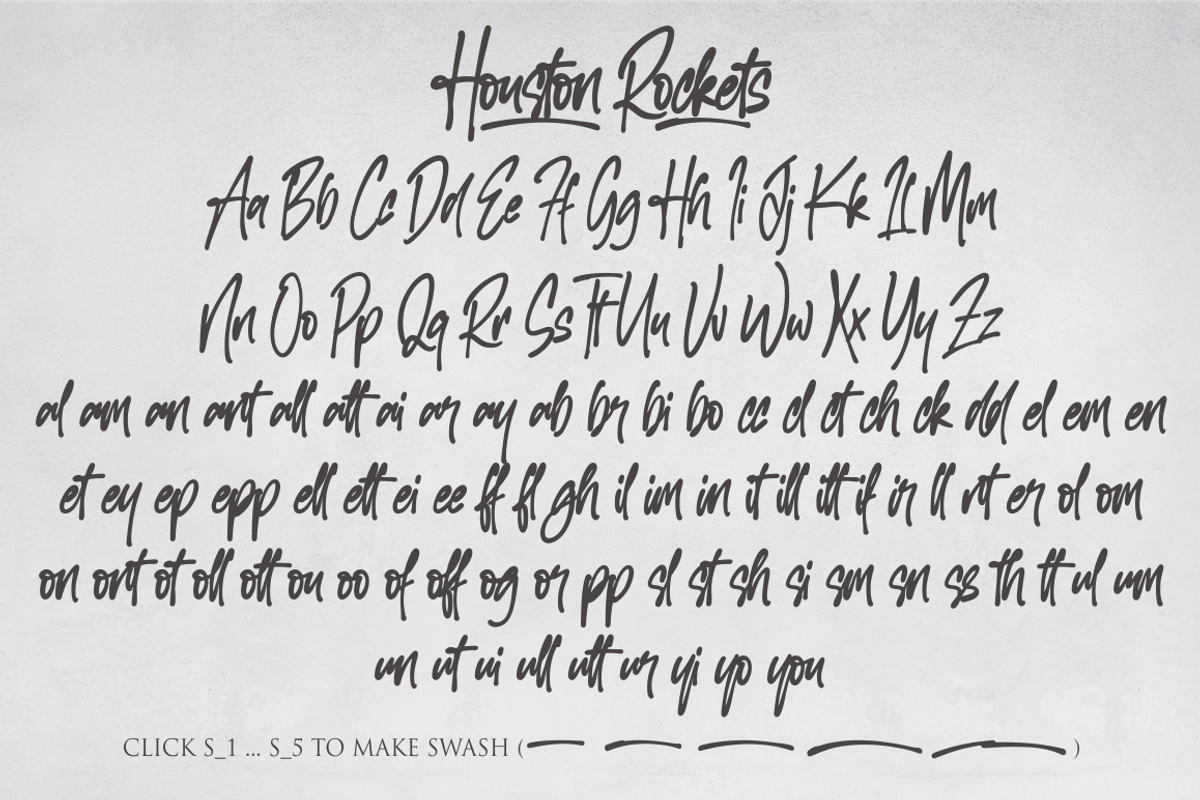 Houston Rockets
Aa Bb Cc Dd Ee Ff Gg Hh Ii Jj Kk Ll Mm
Nn Oo Pp Qq Rr Ss Tt Uu Vv Ww Xx Yy Zz
al am an ant all att ai ar ay ab br bi bo cc cl ct ch ck dd el em en
et ey ep epp ell ett ei ee ff fl gh il im in it ill itt if ir ll nt er ol om
on ont ot oll ott ou oo of off og or pp sl st sh si sm sn ss th tt ul um
un ut ui ull utt ur yi yo you
CLICK S_1 ... S_5 TO MAKE SWASH ( )